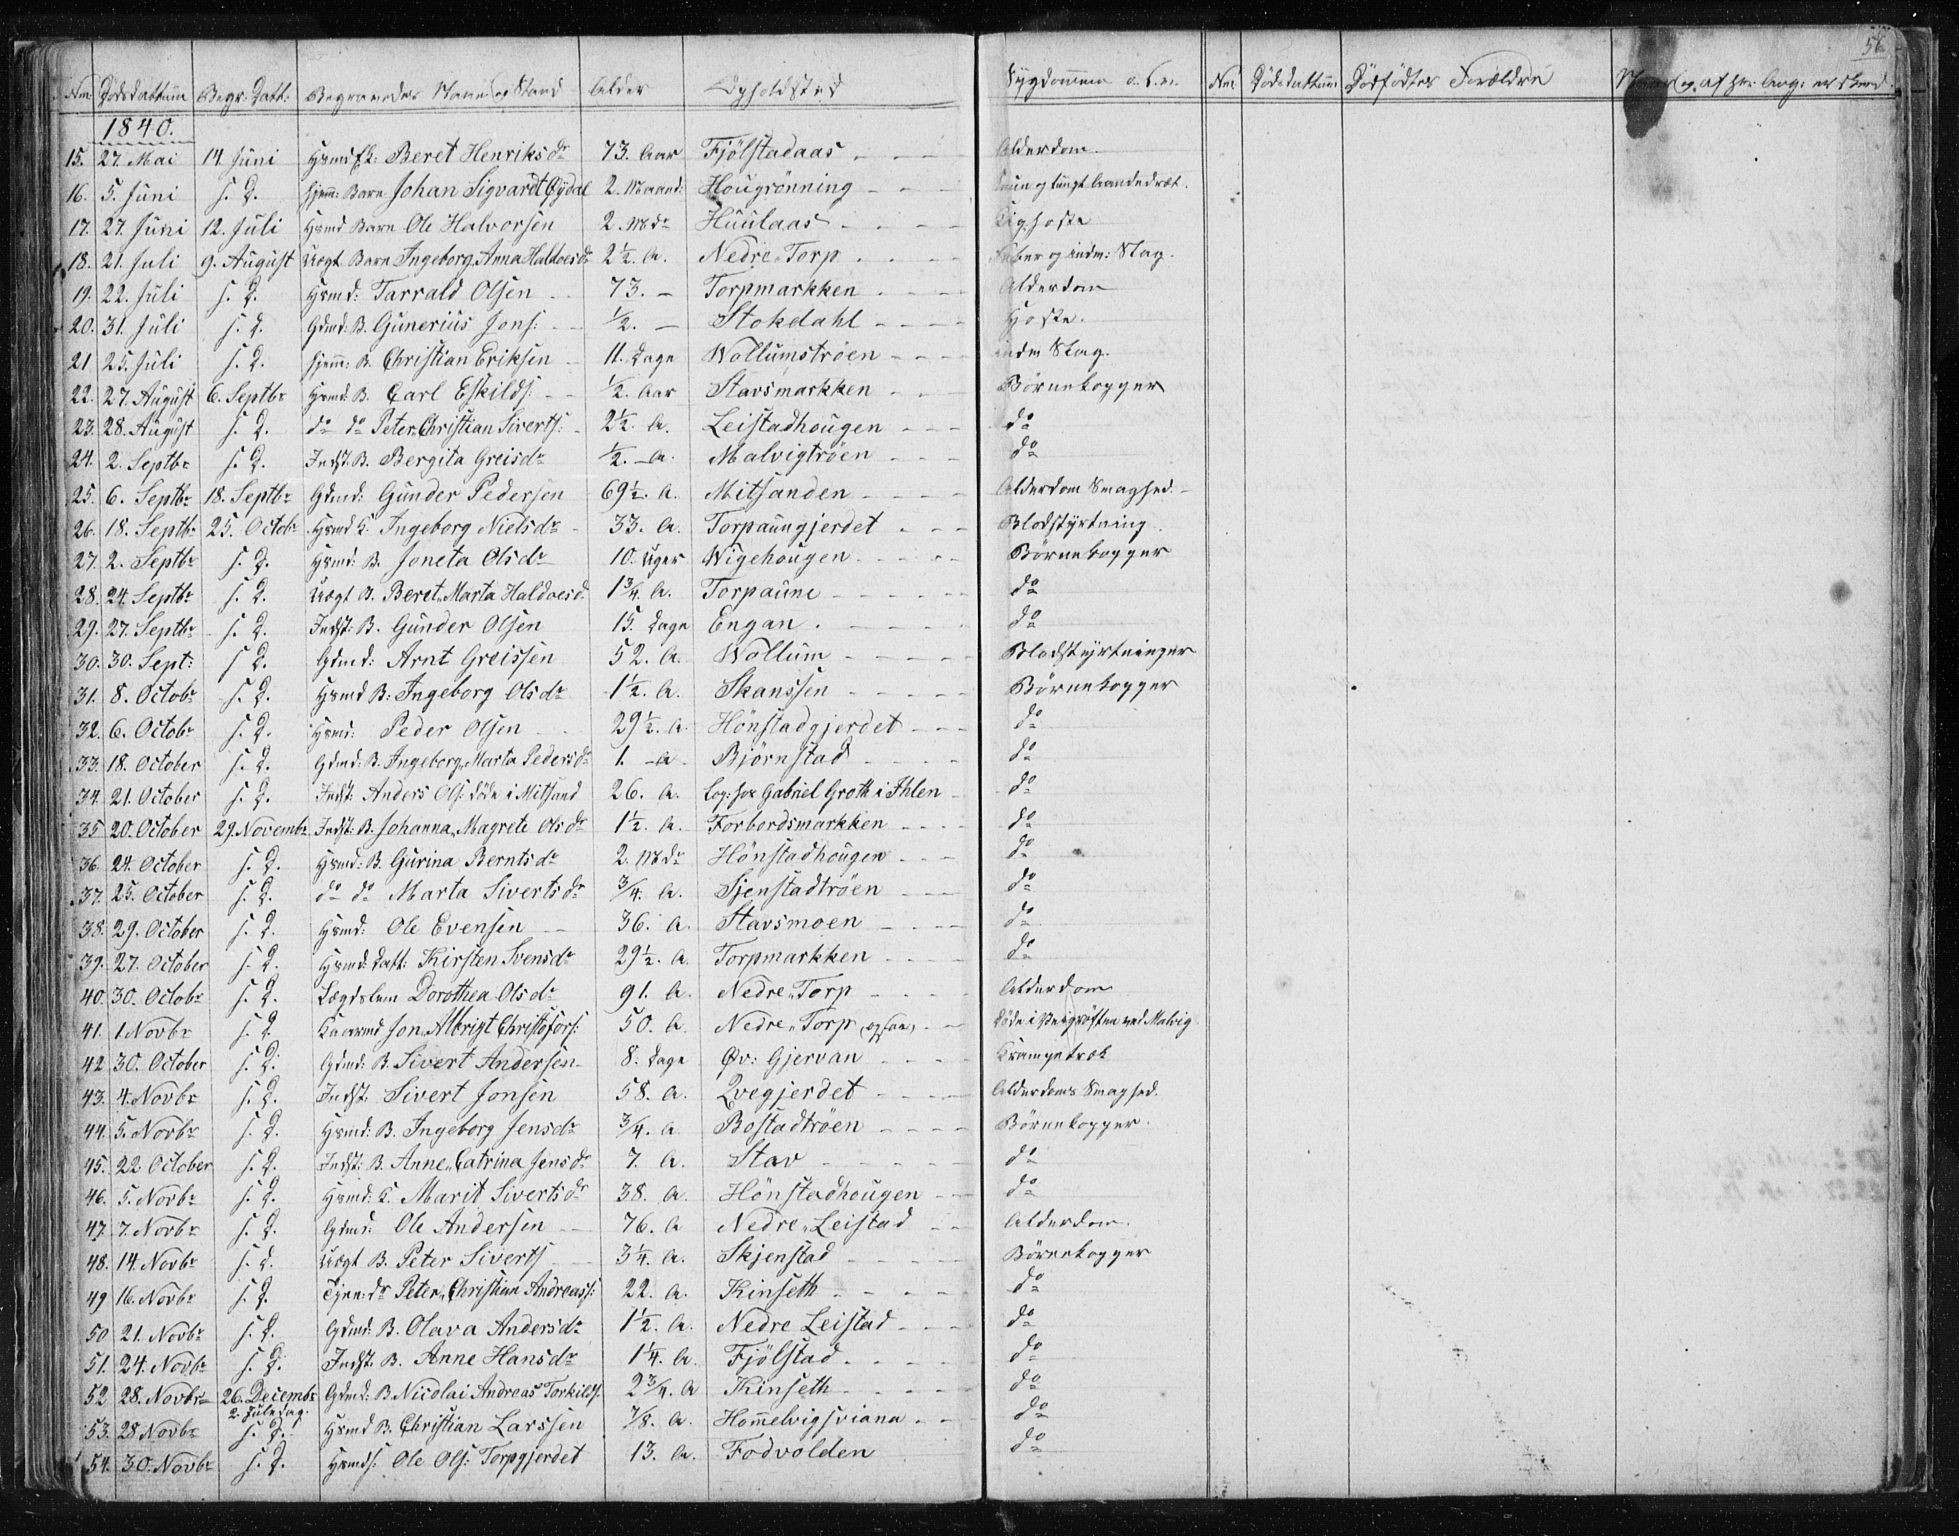 56
Nm Dødsdattum Begr: Datt: Begravedes Navn og Stand Alder Opholdsted Sygdommen o. s. v. Nm: Dødsdattum Dødfødtes Forældre
1840.
15. 27. Mai 14. Juni Beret Henriksdr 73. Aar Fjölstadaas Alderdom.
16. 5. Juni s. D. Barn Johan Sigvardt Øydal 2. Maand: Hougrönning og tungt Aandedræt.
17. 27. Juni 12. Juli Hsmd Barn Ole Halvorsen 2. Mdr Huulaas Kighoste
18. 21. Juli 9. August Uægt Barn Ingeborg Anna Haldoesdr 2½. A. Nedre Torp Feber og indv: Slag.
19. 22. Juli s. D. Hsmd: Tarrald Olsen 73. – Torpmarkken Alderdom
20. 31. Juli s. D. Gdmd: B. Gunerius Jons: ½. – Stokdahl Hoste.
21 25. Juli s. D. B. Christian Eriksen 11. Dage Wollumströen indv Slag.
22. 27. August 6. Septbr Hsmd: B. Carl Eskilds: ½. Aar Stavsmarkken Börnekopper
23. 28. August s. D. do do Peter Christian Siverts: 2½. A. Leistadhougen do
24. 2. Septbr s. D. Indst: B. Bergita Greisdr ½. – A. Malvigtröen do
25. 6. Septbr 18. Septbr Gdmd: Gunder Pedersen 69½. A. Mitsanden Alderdom Svaghed.
26. 18. Septbr 25. Octobr Hsmd K. Ingeborg Nielsdr 33. A. Torpaungjerdet Blodstyrtning
27. 2. Septbr s. D. Hsmd: B. Joneta Olsdr 10. Uger Wigehougen Börnekopper
28. 24. Septbr s. D. Uægt B. Beret Marta Haldoesd. 1¾. A. Torpaune do
29. 27. Septbr s. D. Indst: B. Gunder Olsen 15. Dage Engan do
30. 30. Sept: s. D. Gdmd: Arnt Greissen 52. A. Wollum Blodstyrtninger
31. 8. Octobr s. D. Hsmd B: Ingeborg Olsdr 1½. A. Skanssen Börnekopper
32. 6. Octobr s. D. Hsmd: Peder Olsen 29½. A. Hönstadgjerdet do
33. 18. October s. D. Gdmd: B. Ingeborg Marta Pedersdr 1. – A Björnstad do
34. 21. October s. D. Indst: Anders Ols: döde i Mitsand 26. A. Log: hos Gabriel Groth i Ihlen do
35 20. October 29. Novembr Indst: B. Johanna Magrete Olsdr 1½. A. Forbordsmarkken do
36. 24. October s. D. Hsmd: B. Gurina Berntsdr 2. Mdr Hönstadhougen do
37. 25. October s. D. do do Marta Sivertsdr ¾. A. Sjenstadtröen do
38. 29. October s. D. Hsmd: Ole Evensen 36. A. Stavsmoen do
39. 27. October s. D. Hsmd: Datt: Kirsten Svensdr 29½. A. Torpmarkken do
40. 30. Octobr s. D. Lægdslem Dorothea Olsdr 91. A. Nedre Torp Alderdom
41. 1. Novbr s. D. Jon Albrigt Christofors: 50. A. Nedre Torp döde i Veigröften ved Malvig
42 30. October s. D. Gdmd: B. Sivert Andersen 8. Dage Øv: Gjervan Krampetræk
43. 4. Novbr s. D. Indst. Sivert Jonsen 58. A. Qvegjerdet Alderdoms Svaghed.
44. 5. Novbr s. D. Hsmd: B. Ingeborg Jensdr ¾. A. Bostadtröen Börnekopper.
45. 22 October s. D. Indst: B. Anne Catrina Jensdr 7. A. Stav do
46. 5. Novbr s. D. Hsmd: K. Marit Sivertsdr 38. A. Hönstadhougen do
47. 7. Novbr s. D. Gdmd: Ole Andersen 76. A Nedre Leistad Alderdom.
48. 14. Novbr s. D. Uægt B. Peter Siverts 3¼. A. Skjenstad Börnekopper
49 16. Novbr s. D. Peter Christian Andreass: 22. A. Kinseth do
50 21. Novbr s. D. Gdmd: B. Olava Andersdr 1½. A. Nedre Leistad do
51. 24. Novbr s. D. Indst. B. Anne Hansdr 1¼. A. Fjölstad do
52 28. Novbr 26. Decembr Gdmd: B. Nicolai Andreas Torkilds: 2¾. A Kinseth do
2. Juledag.
53. 28 Novbr s. D. Hsmd B. Christian Larssen ⅞. A. Hommelvigsviana do
54. 30. Novbr s. D. Ole Ols: Torpgjerdet 13. A. Fodvolden do